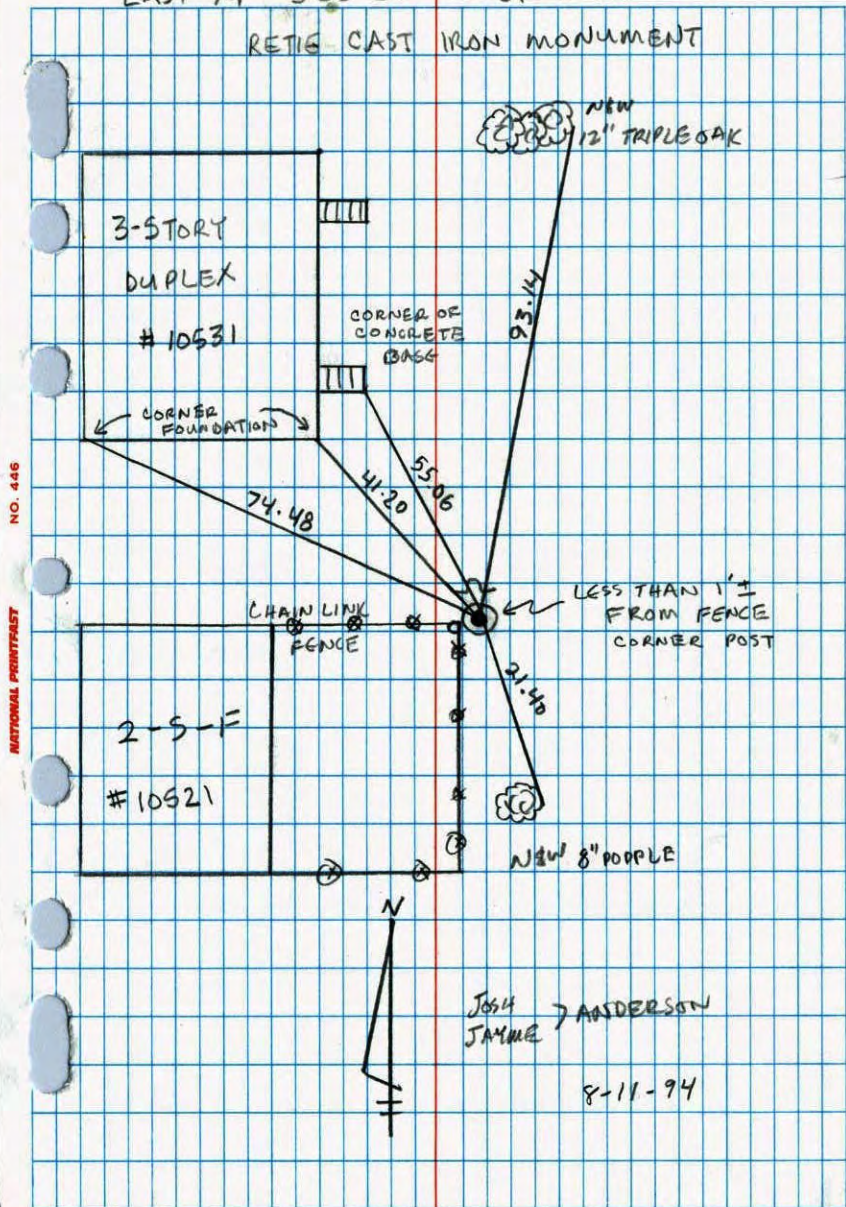 RETIE CAST IRON MONUMENT
N&W
12" TRIPLE OAK
3-STORY
DUPLEX
# 10531
CORNER OF
CONCRETE
BASE
93.14
CORNER
FOUNDATION
74.48
41.20
55.06
CHAIN LINK
FENCE
LESS THAN 1'±
FROM FENCE
CORNER POST
21.40
2-S-F
# 10521
N&W 8" POPPLE
N
JOSH
JAYME > ANDERSON
8-11-94
NO. 446
NATIONAL PRINTFAST